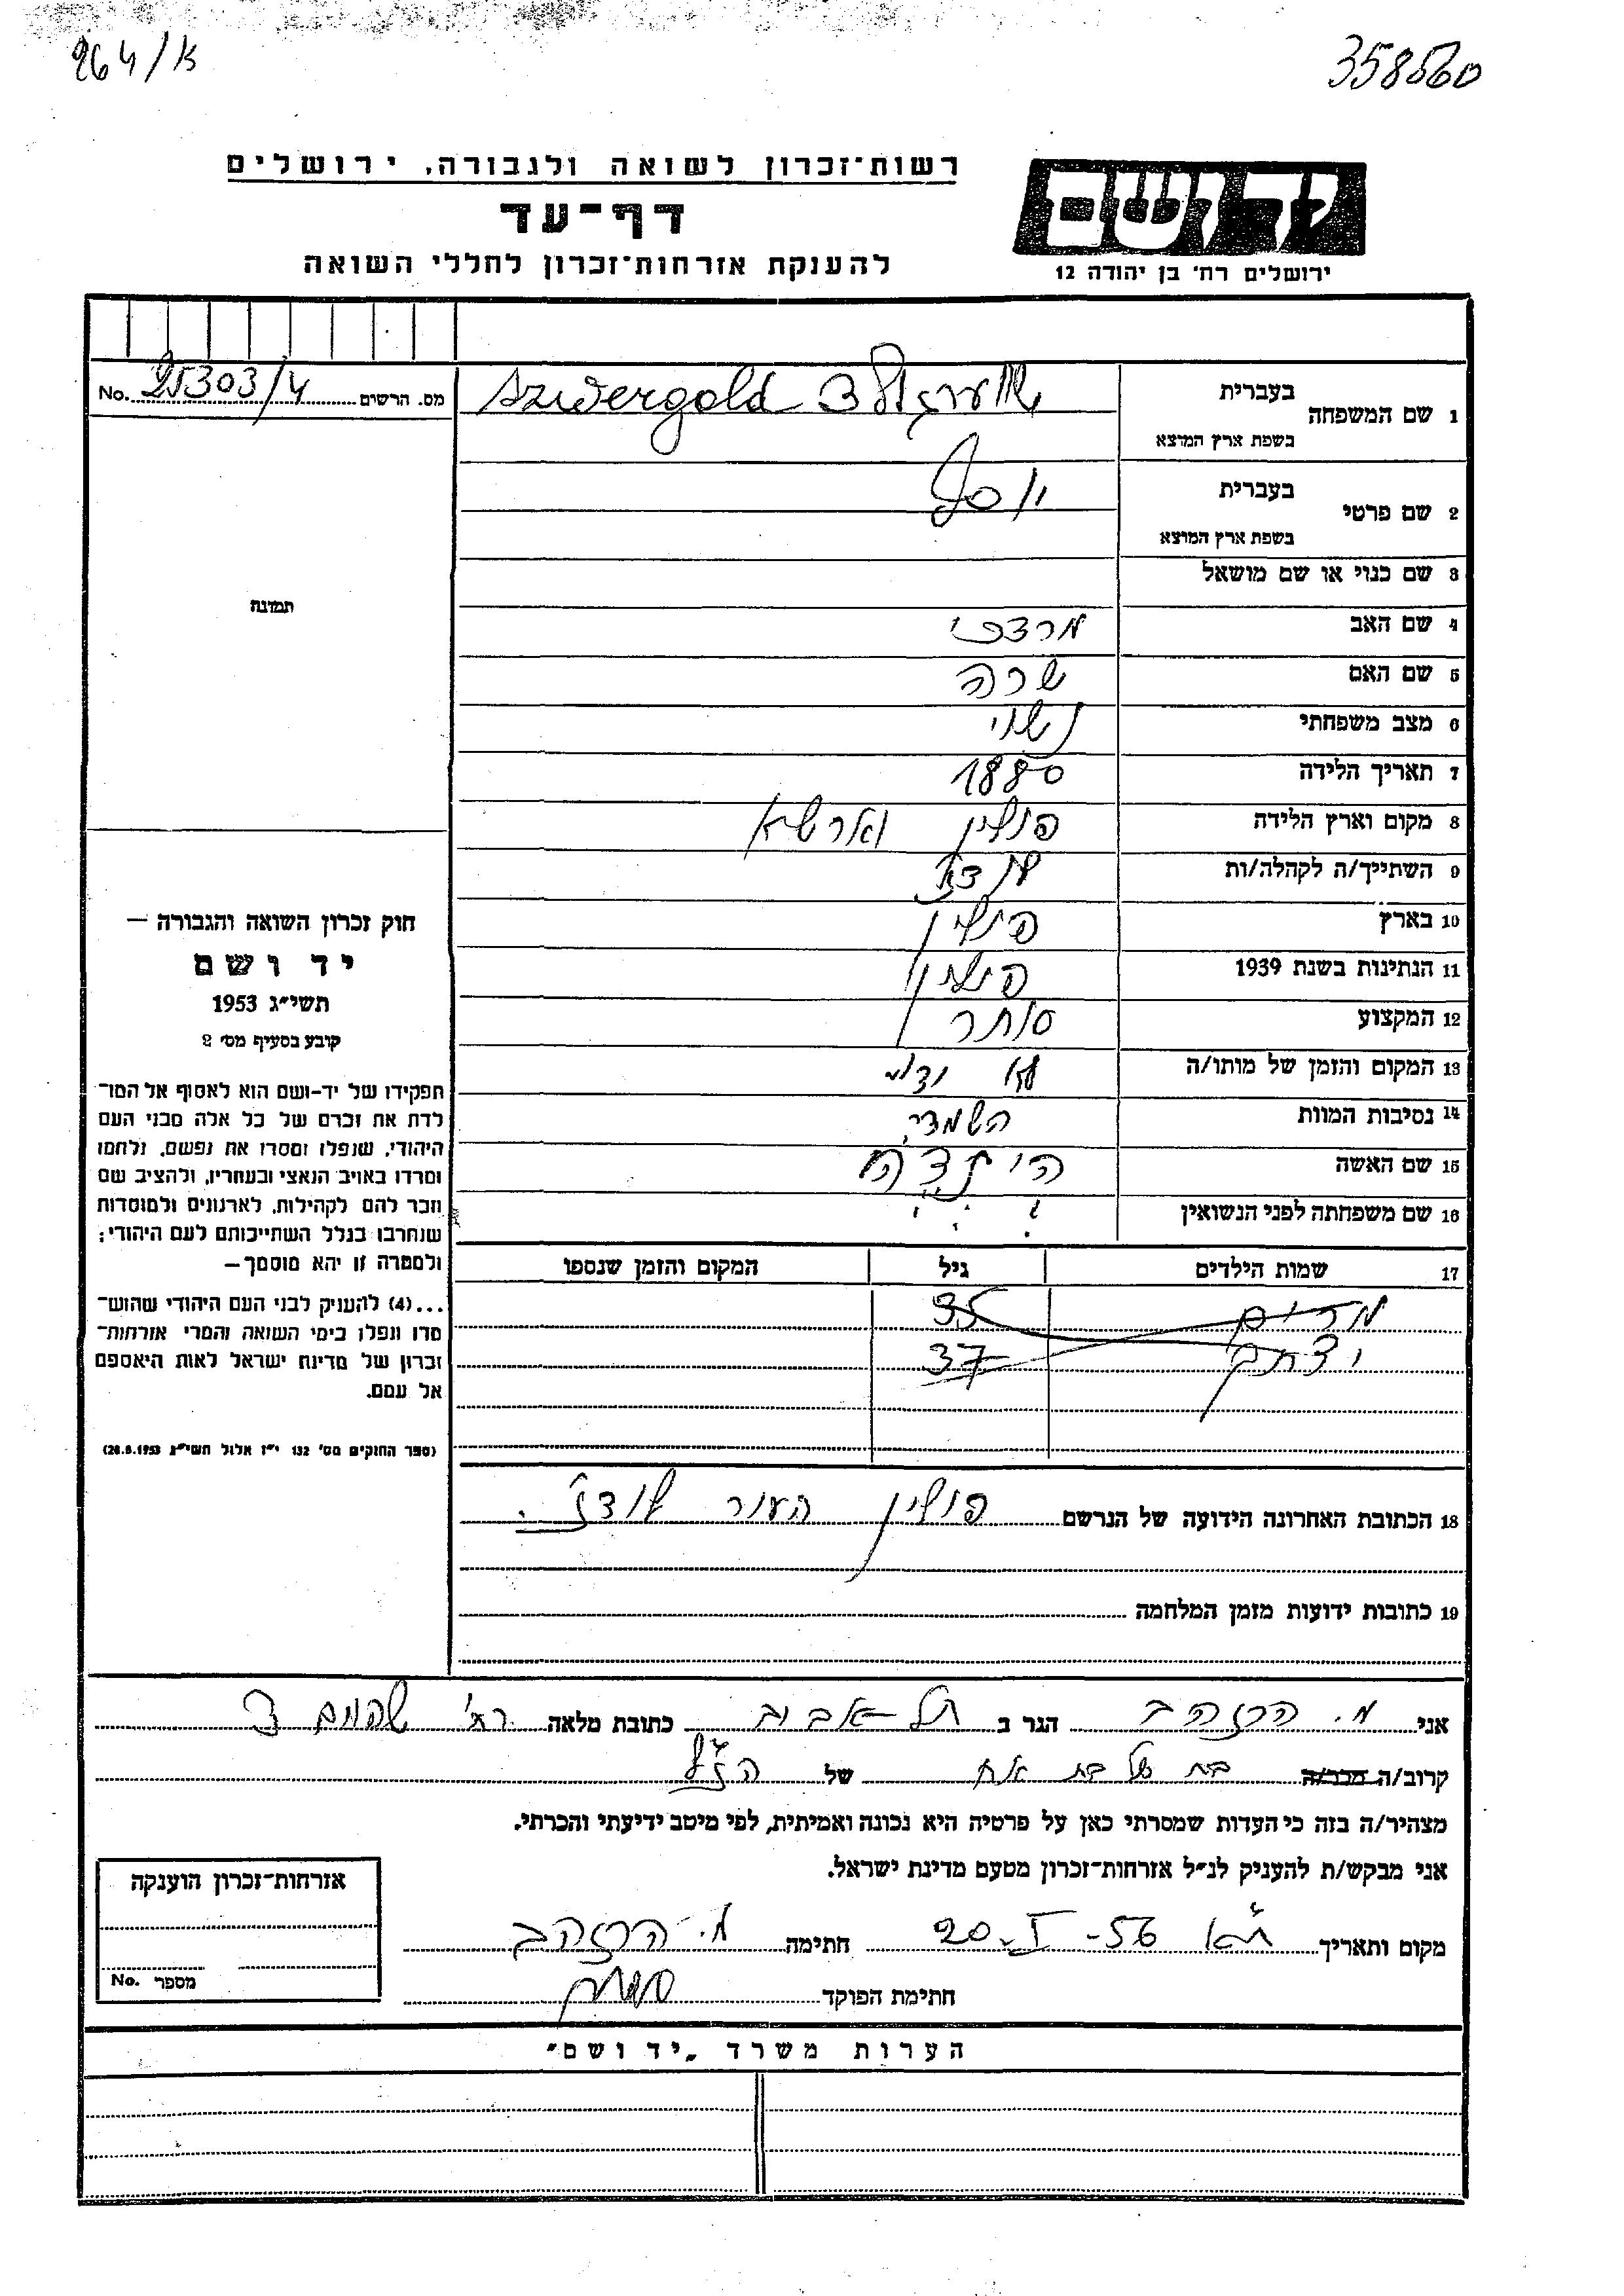 264/א
358560
רשות־זכרון לשואה ולגבורה, ירושלים
דף־עד
להענקת אזרחות־זכרון לחללי השואה
ידושם
ירושלים רח׳ בן יהודה 12
מס. הרשים No. 25303/4
1 שם המשפחה
בעברית
בשפת ארץ המוצא
Szwergold
2 שם פרטי
בעברית יוסף
בשפת ארץ המוצא
3 שם כנוי או שם מושאל
4 שם האב מרדכי
5 שם האם שרה
6 מצב משפחתי נשוי
7 תאריך הלידה 1880
8 מקום וארץ הלידה פולין
9 השתייך/ה לקהלה/ות לודז׳
10 בארץ פולין
11 הנתינות בשנת 1939 פולין
12 המקצוע סוחר
13 המקום והזמן של מותו/ה לא ידוע
14 נסיבות המוות השמדה
15 שם האשה
16 שם משפחתה לפני הנשואין
17 שמות הילדים גיל המקום והזמן שנספו
מרים 35
יצחק 37
18 הכתובת האחרונה הידועה של הנרשם פולין העיר לודז׳
19 כתובות ידועות מזמן המלחמה
תמונה
חוק זכרון השואה והגבורה —
יד ושם
תשי״ג 1953
קובע בסעיף מס׳ 2
תפקידו של יד־ושם הוא לאסוף אל המו־
לדת את זכרם של כל אלה מבני העם
היהודי, שנפלו ומסרו את נפשם, נלחמו
ומרדו באויב הנאצי ובעוזריו, ולהציב שם
וזכר להם לקהילות, לארגונים ולמוסדות
שנחרבו בגלל השתייכותם לעם היהודי;
ולמטרה זו יהא מוסמך —
...(4) להעניק לבני העם היהודי שהוש־
מדו ונפלו בימי השואה והמרי אזרחות־
זכרון של מדינת ישראל לאות היאספם
אל עמם.
(ספר החוקים מס׳ 132 י״ז אלול תשי״ג 28.8.1953)
אני מ. הרזהב הגר ב תל אביב כתובת מלאה רח׳ 3
קרוב/ה מכר/ה בת של בת אח של הנ״ל
מצהיר/ה בזה כי העדות שמסרתי כאן על פרטיה היא נכונה ואמיתית, לפי מיטב ידיעתי והכרתי.
אני מבקש/ת להעניק לנ״ל אזרחות־זכרון מטעם מדינת ישראל.
מקום ותאריך ת״א 20-I-56 חתימה מ. הרזהב
חתימת הפוקד
אזרחות־זכרון הוענקה
מספר No.
הערות משרד „יד ושם״